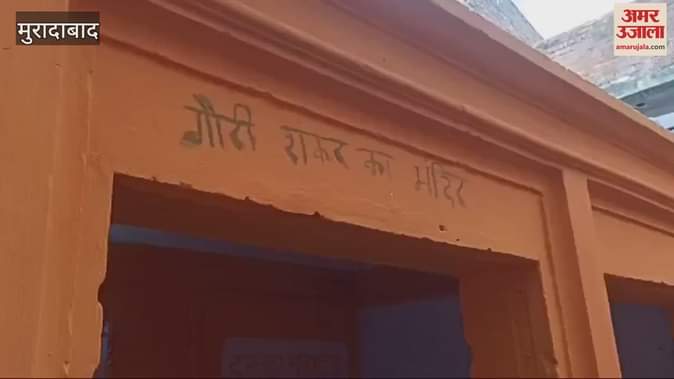 मुरादाबाद
अमर
उजाला
amarujala.com
गौरी शंकर का मंदिर